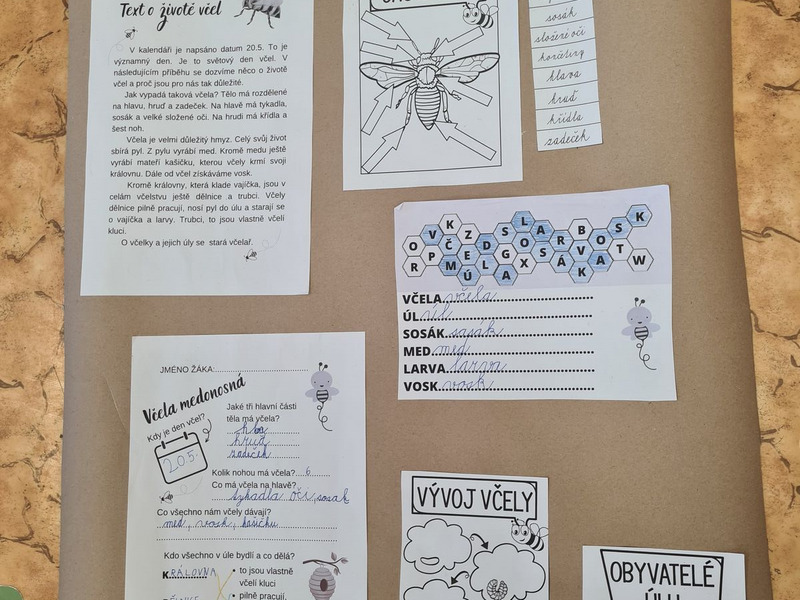 Text o životě včel
V kalendáři je napsáno datum 20.5. To je
významný den. Je to světový den včel. V
následujícím příběhu se dozvíme něco o životě
včel a proč jsou pro nás tak důležité.
Jak vypadá taková včela? Tělo má rozdělené
na hlavu, hruď a zadeček. Na hlavě má tykadla,
sosák a velké složené oči. Na hrudi má křídla a
šest noh.
Včela je velmi důležitý hmyz. Celý svůj život
sbírá pyl. Z pylu vyrábí med. Kromě medu ještě
vyrábí mateří kašičku, kterou včely krmí svoji
královnu. Dále od včel získáváme vosk.
Kromě královny, která klade vajíčka, jsou v
celém včelstvu ještě dělnice a trubci. Včely
dělnice pilně pracují, nosí pyl do úlu a starají se
o vajíčka a larvy. Trubci, to jsou vlastně včelí
kluci.
O včelky a jejich úly se stará včelař.
sosák
složené oči
končetiny
hlava
hruď
křídla
zadeček
O V K Z D S L A R B O S K
R P Č M E Ú D L G A O X S Á V K A T W
VČELA včela
ÚL úl
SOSÁK sosák
MED med
LARVA larva
VOSK vosk
JMÉNO ŽÁKA:
Včela medonosná
Kdy je den včel?
20.5.
Jaké tři hlavní části
těla má včela?
hruď
zadeček
Kolik nohou má včela? 6
Co má včela na hlavě?
tykadla oči, sosák
Co všechno nám včely dávají?
med, vosk, kašičku
Kdo všechno v úle bydlí a co dělá?
KRÁLOVNA
• to jsou vlastně
včelí kluci
• pilně pracují,
VÝVOJ VČELY
OBYVATELÉ
ÚLU